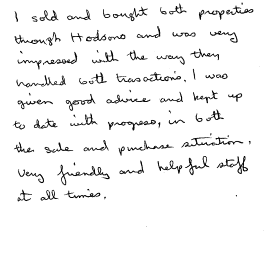 I sold and bought both properties
through Hodsons and was very
impressed with the way they
handled both trasactions. I was
given good advice and kept up
to date with progress, in both
the sale and purchase situation.
Very friendly and helpful staff
at all times.